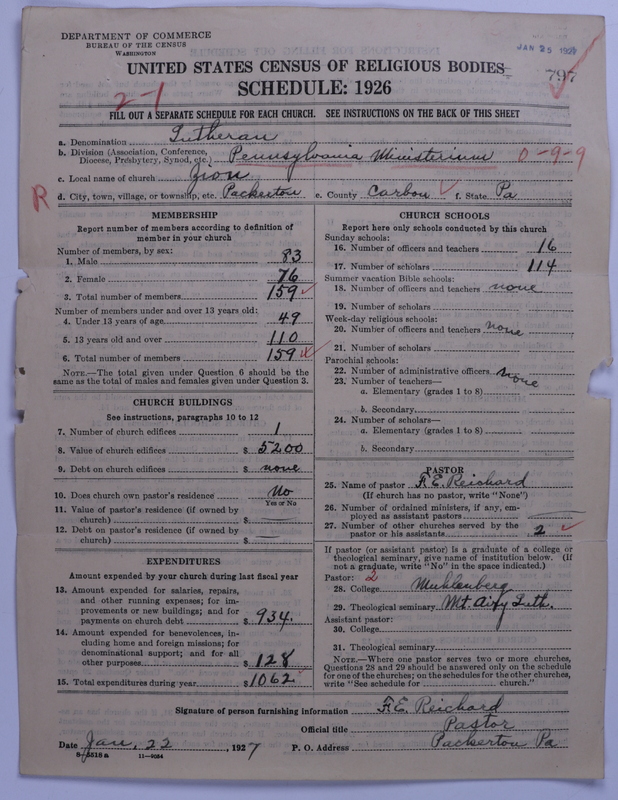 DEPARTMENT OF COMMERCE
BUREAU OF THE CENSUS
WASHINGTON
JAN 25 1927
UNITED STATES CENSUS OF RELIGIOUS BODIES
797
SCHEDULE: 1926
2-1
FILL OUT A SEPARATE SCHEDULE FOR EACH CHURCH. SEE INSTRUCTIONS ON THE BACK OF THIS SHEET
a. Denomination Lutheran
b. Division (Association, Conference, Diocese, Presbytery, Synod, etc.) Pennsylvania Ministerium 0-9-9
c. Local name of church Zion
R
d. City, town, village, or township, etc. Packerton e. County Carbon f. State Pa
MEMBERSHIP
Report number of members according to definition of
member in your church
Number of members, by sex:
1. Male 83
2. Female 76
3. Total number of members 159
Number of members under and over 13 years old:
4. Under 13 years of age 49
5. 13 years old and over 110
6. Total number of members 159
NOTE.—The total given under Question 6 should be
same as the total of males and females given under Question 3.
CHURCH BUILDINGS
See instructions, paragraphs 10 to 12
7. Number of church edifices 1
8. Value of church edifices $ 5200
9. Debt on church edifices $ none
10. Does church own pastor's residence No
Yes or No
11. Value of pastor's residence (if owned by
church) $ —
12. Debt on pastor's residence (if owned by
church) $ —
EXPENDITURES
Amount expended by your church during last fiscal year
13. Amount expended for salaries, repairs,
and other running expenses; for im-
provements or new buildings; and for
payments on church debt $ 934.
14. Amount expended for benevolences, in-
cluding home and foreign missions; for
denominational support; and for all
other purposes $ 128
15. Total expenditures during year $ 1062
CHURCH SCHOOLS
Report here only schools conducted by this church
Sunday schools:
16. Number of officers and teachers 16
17. Number of scholars 114
Summer vacation Bible schools:
18. Number of officers and teachers none
19. Number of scholars
Week-day religious schools:
20. Number of officers and teachers none
21. Number of scholars
Parochial schools:
22. Number of administrative officers none
23. Number of teachers—
a. Elementary (grades 1 to 8)
b. Secondary
24. Number of scholars—
a. Elementary (grades 1 to 8)
b. Secondary
PASTOR
25. Name of pastor F. E. Reichard
(If church has no pastor, write "None")
26. Number of ordained ministers, if any, em-
ployed as assistant pastors —
27. Number of other churches served by the
pastor or his assistants 2
If pastor (or assistant pastor) is a graduate of a college or
theological seminary, give name of institution below. (If
not a graduate, write "No" in the space indicated.)
Pastor: 2
28. College Muhlenberg
29. Theological seminary Mt. Airy Luth.
Assistant pastor:
30. College
31. Theological seminary
NOTE.—Where one pastor serves two or more churches,
Questions 28 and 29 should be answered only on the schedule
for one of the churches; on the schedules for the other churches,
write "See schedule for church."
Signature of person furnishing information F. E. Reichard
Official title Pastor
Date Jan. 22, 1927 P. O. Address Packerton Pa
8-5518a 11-9054